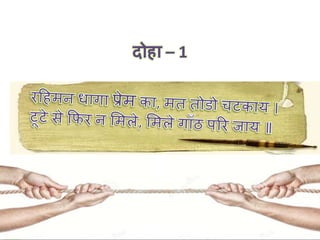 दोहा – 1
रहिमन धागा प्रेम का, मत तोडो चटकाय |
टूटे से फिर न मिले, मिले गाँठ परि जाय ॥